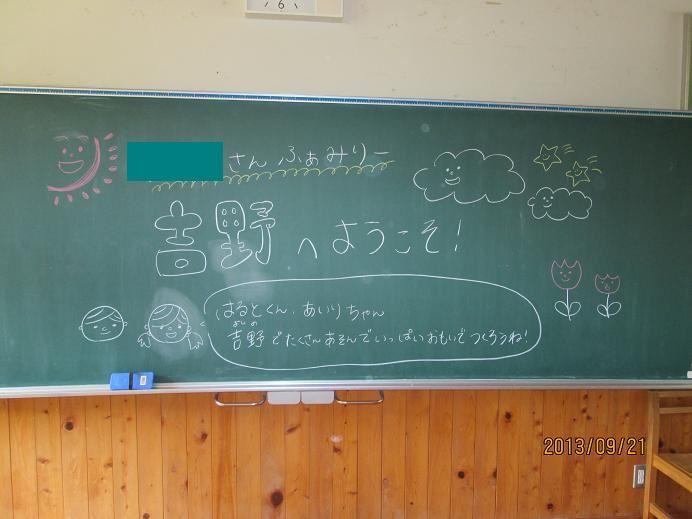 さんふぁみりー
吉野へようこそ!
はるとくん、あいりちゃん
よしの
吉野でたくさんあそんでいっぱいおもいでつくろうね!
2013/09/21